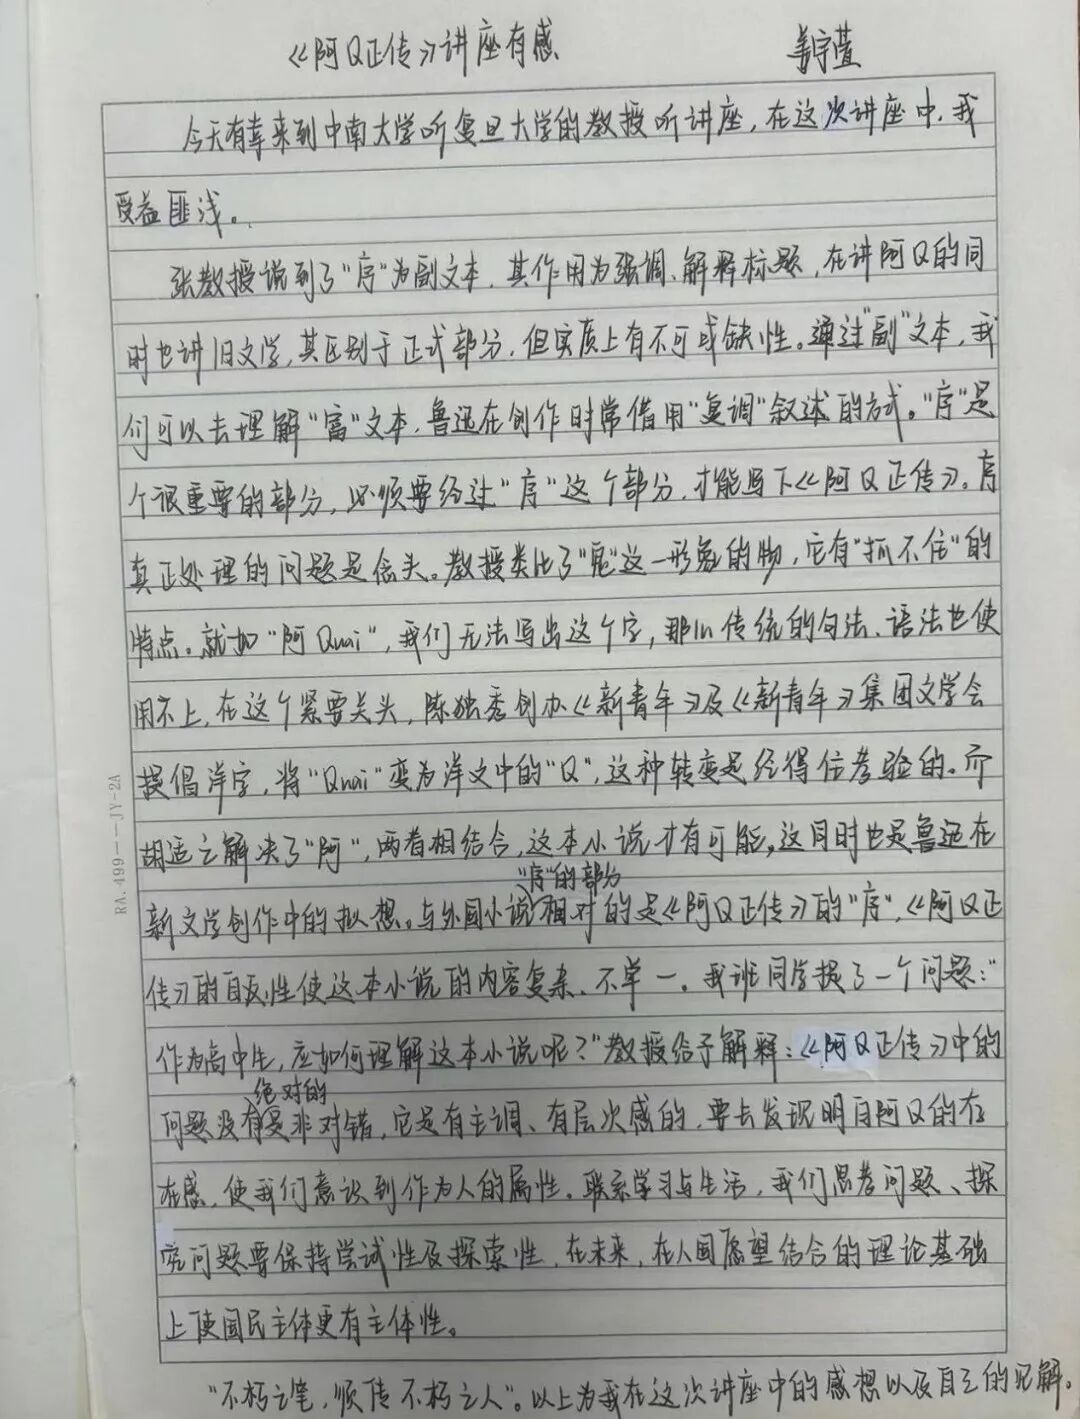 《阿Q正传》讲座有感 姜宇萱
今天有幸来到中南大学听复旦大学的教授听讲座，在这次讲座中，我
受益匪浅。
张教授说到了“序”为副文本，其作用为强调、解释标题，在讲阿Q的同
时也讲旧文学，其区别于正式部分，但实质上有不可或缺性。通过“副”文本，我
们可以去理解“富”文本，鲁迅在创作时常借用“复调”叙述的方式。“序”是
个很重要的部分，必须要经过“序”这个部分，才能写下《阿Q正传》。序
真正处理的问题是念头。教授类比了“鬼”这一形象的物，它有“抓不住”的
特点。就如“阿Quai”，我们无法写出这个字，那么传统的句法、语法也使
用不上，在这个紧要关头，陈独秀创办《新青年》及《新青年》集团文学会
提倡洋字，将“Quai”变为洋文中的“Q”，这种转变是经得住考验的。而
胡适之解决了“阿”，两者相结合，这本小说才有可能。这同时也是鲁迅在
“序”的部分
新文学创作中的拟想。与外国小说相对的是《阿Q正传》的“序”，《阿Q正
传》的自反性使这本小说的内容复杂、不单一。我班同学提了一个问题：“
作为高中生，应如何理解这本小说呢？”教授给予解释：《阿Q正传》中的
绝对的
问题没有是非对错，它是有主调、有层次感的，要去发现明白阿Q的存
在感，使我们意识到作为人的属性。联系学习与生活，我们思考问题、探
究问题要保持尝试性及探索性，在未来，在人国愿望结合的理论基础
上使国民主体更有主体性。
“不朽之笔，须传不朽之人”。以上为我在这次讲座中的感想以及自己的见解。
RA.499—JY-2A